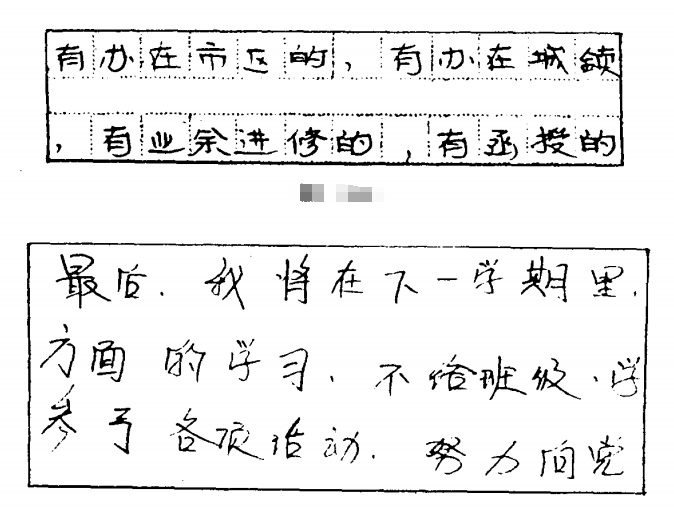 有办在市区的，有办在城镇
，有业余进修的，有函授的
最后，我将在下一学期里，
方面的学习，不给班级、学
参与各项活动，努力向党